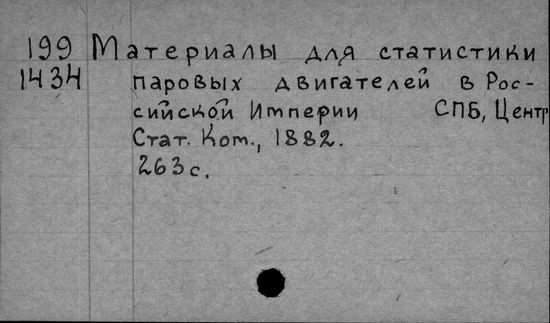 199 Материалы для статистики
1434 паровых двигателей в Рос-
сийской Империи СПБ, Центр
Стат. Ком., 1882.
263 с.